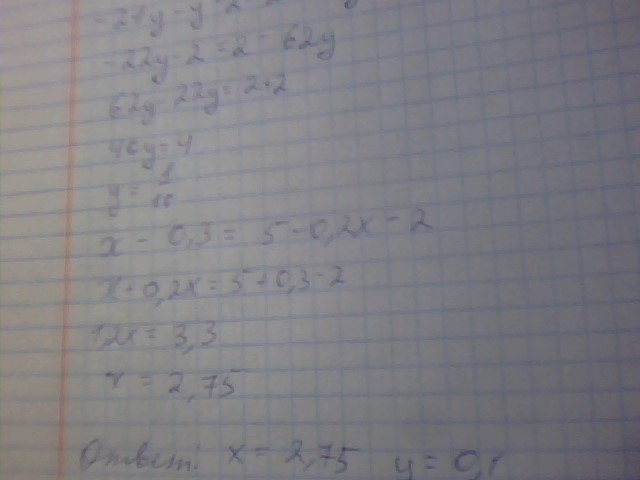 -22y-2=2-62y
62y-22y=2+2
40y=4
y=1/10
x-0,3=5-0,2x-2
x+0,2x=5+0,3-2
1,2x=3,3
x=2,75
Ответ: x=2,75 y=0,1